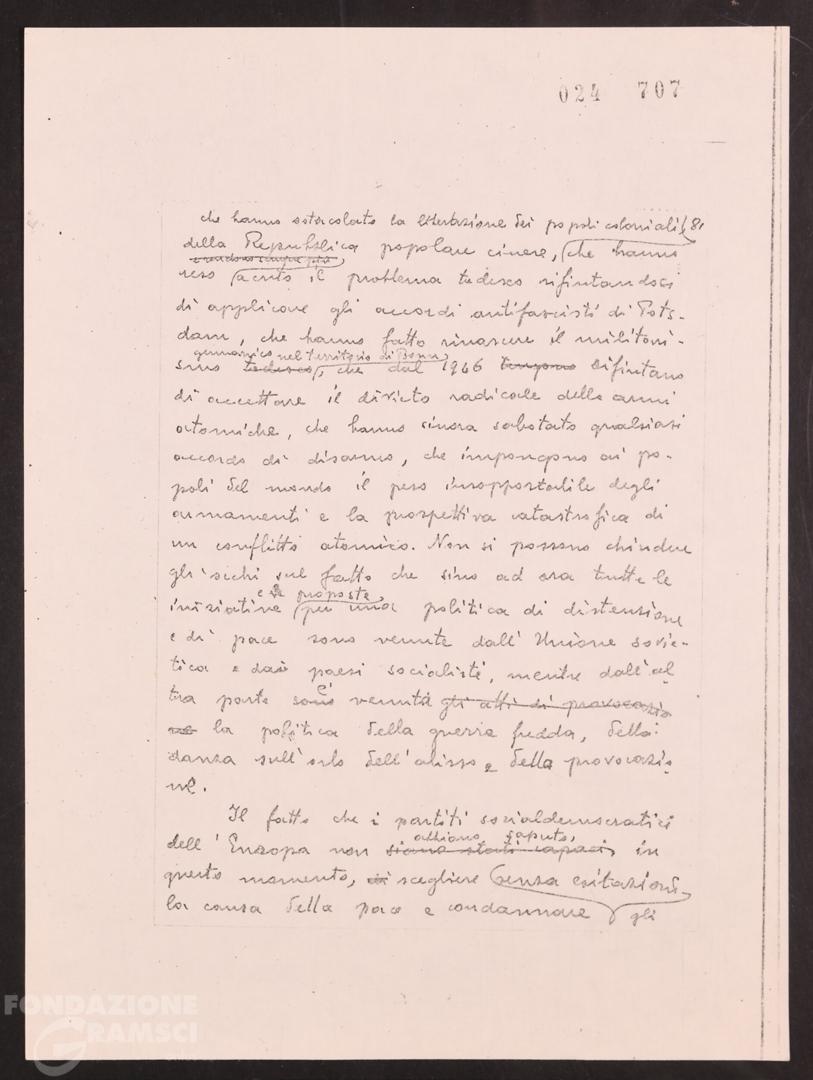 024 707
che hanno ostacolato la liberazione dei popoli coloniali 8)
della Repubblica popolare cinese, che hanno
reso acuto il problema tedesco rifiutandosi
di applicare gli accordi antifascisti di Pots-
dam, che hanno fatto rinascere il militari-
germanico nel territorio di Bonn
smo tedesco, che dal 1946 rifiutano
di accettare il divieto radicale delle armi
atomiche, che hanno sinora sabotato qualsiasi
accordo di disarmo, che impongono ai po-
poli del mondo il peso insopportabile degli
armamenti e la prospettiva catastrofica di
un conflitto atomico. Non si possono chiudere
gli occhi sul fatto che sino ad ora tutte le
e le proposte
iniziative per una politica di distensione
e di pace sono venute dall'Unione sovie-
tica e dai paesi socialisti, mentre dall'al
tra parte è venuta gli atti di provocazio
ne la politica della guerra fredda, della
danza sull'orlo dell'abisso e della provocazio
ne.
Il fatto che i partiti socialdemocratici
abbiano saputo,
dell'Europa non siano stati capaci, in
questo momento, di scegliere senza esitazioni
la causa della pace e condannare gli
FONDAZIONE
GRAMSCI